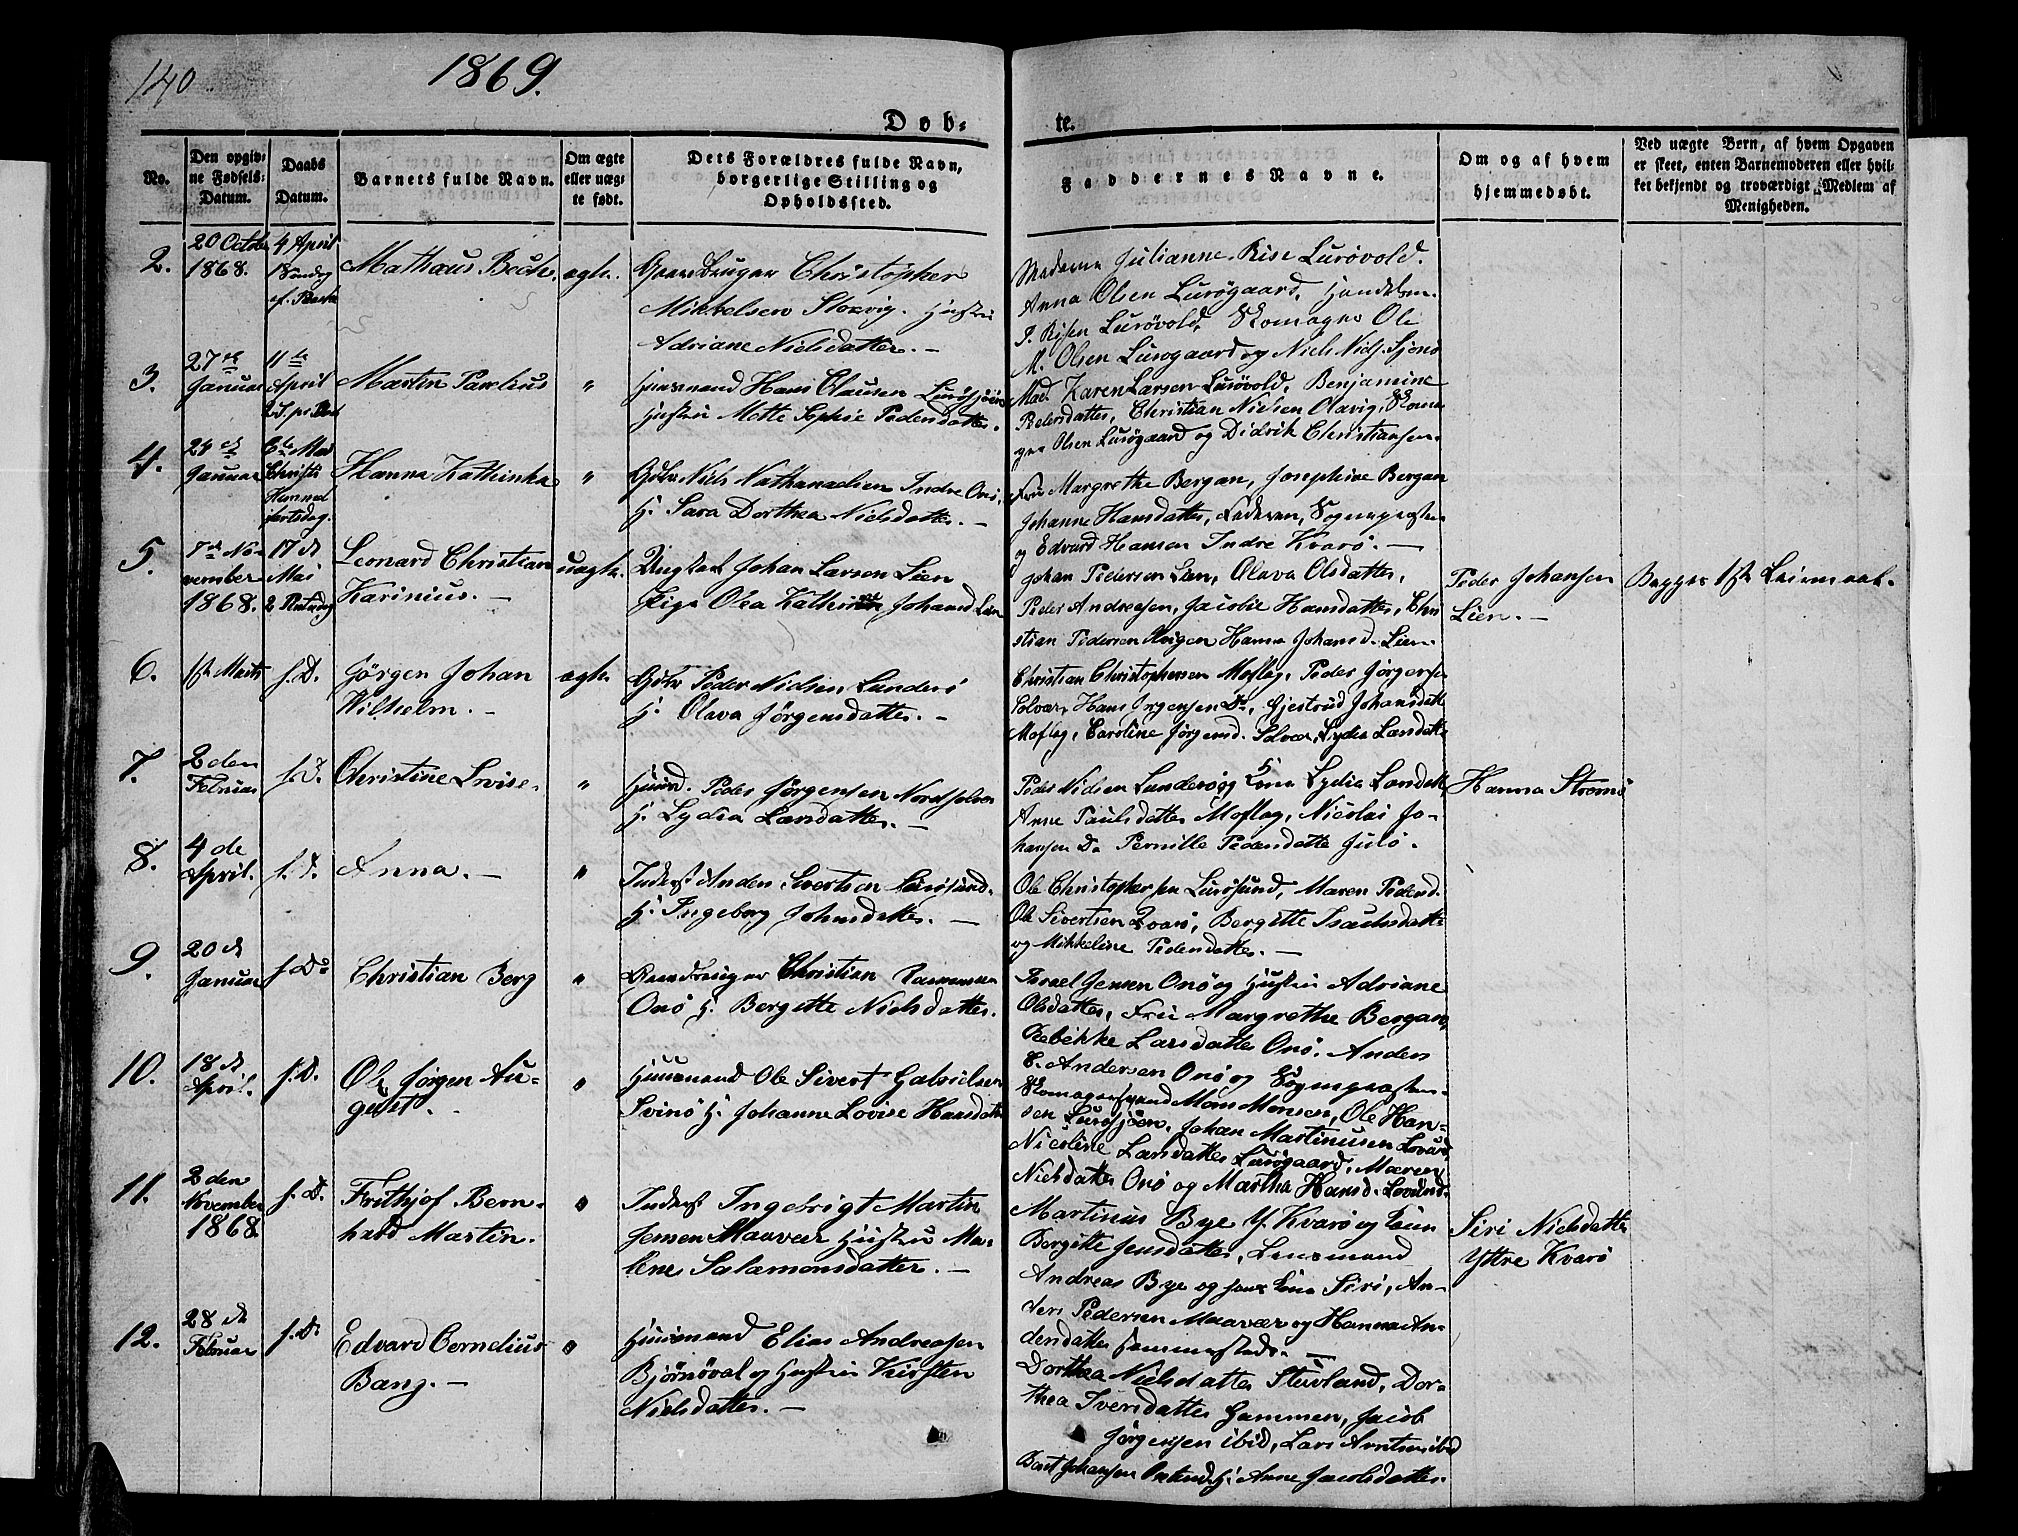 140
1869.
Døb-
te.
No.
Den opgiv-
ne Fødsels-
Datum.
Daabs
Datum.
Barnets fulde Navn.
Om ægte
eller uæg-
te født.
Dets Forældres fulde Navn,
borgerlige Stilling og
Opholdssted.
Faddernes Navne.
Om og af hvem
hjemmedøbt.
Ved uægte Børn, af hvem Opgaven
er skeet, enten Barnemoderen eller hvil-
ket bekjendt og troværdigt Medlem af
Menigheden.
2.
20 Octob
1868.
4 April
1 Søndag
ef. Paaske
Mathæus Bech.
ægte.
Gaardbruger Christopher
Mikkelsen Storvig. Hustru
Adriane Nielsdatter. —
Madame Julianne Riise Lurøvold.
Anna Olsen Lurøgaard, Handelsm.
P. Risen Lurøvold, Skomager Ole
M. Olsen Lurøgaard og Niels Niels. Sjonø
3.
27de
Januar
11te
April
2 S. p. Pask
Martin Parelius
"
Huusmand Hans Clausen Lurøsjøen
Hustru Mette Sophie Pedersdatter.
Mad. Karen Larsen Lurøvold, Benjamine
Pedersdatter, Christian Nielsen Olavig, Skoma-
ger Olsen Lurøgaard og Didrik Christiansen.
4.
24de
Januar
6te Mai
Christi
Himmel
fartsdag.
Hanna Kathinka
"
Gbr Niels Nathanaelsen Indre Onø,
H. Sara Dorthea Nielsdatter. —
Fru Margrethe Bergan, Josephine Bergan
Johanne Hansdatter, Faderen, Sognepræsten
og Edvard Hansen Indre Kvarø. —
5.
7de No-
vember
1868.
17de
Mai
2 Pintsedg
Leonard Christian
Karinius. —
uægte.
Ungkarl Johan Larsen Lien
Pige Olea Kathrine Johansd Lien
Johan Pedersen Lien, Olava Olsdatter,
Peder Andreasen, Jacobie Hansdatter, Chri
stian Pedersen Haugen Hanna Johansd. Lien.
Peder Johansen
Lien. —
Begges 1ste Leiermaal.
6.
1ste Marts
s. D.
Jørgen Johan
Wilhelm. —
ægte.
Gbr Peder Nielsen Sunderø
H. Olava Jørgensdatter. —
Christian Christophersen Moflag, Peder Jørgensen
Solvær, Hans Jørgensen Do, Gjertrud Johansdatt
Moflag, Caroline Jørgensd. Solvær, Lydia Larsdatt
7.
2den
Februar
s. D.
Christine Lovise.
"
Huusmd. Peder Jørgensen Nordsolvær
H. Lydia Larsdatter. —
Peder Nielsen Sunderø og Kone Lydia Larsdatt
Anne Paulsdatter Moflag, Nicolai Jo-
hansen Do Pernille Pedersdatter Julø.
Hanna Strømø
8.
4de
April.
s. D.
Anna. —
"
Inderst Anders Sivertsen Lurøsund.
H. Ingeborg Johnsdatter. —
Ole Christophersen Lurøsund, Maren Pedersd.
Ole Sivertsen Kvarø, Bergitte Isachsdatter
og Mikkeline Pedersdatter. —
9.
20de
Januar
s. Do
Christian Berg
"
Gaardbruger Christian
Onø H. Bergitte Nielsdatter.
Israel Jensen Onø og Hustru Adriane
Olsdatter, Frue Margrethe Bergan,
Rebekke Larsdatter Onø, Anders
C. Andersen Onø og Sognepræsten
10.
18de
April.
s. D.
Ole Jørgen Au-
gust. —
"
Huusmand Ole Sivert Gabrielsen
Svinø H. Johanne Lovise Hansdatter
Skomagersvend Mons Monsen, Ole Han-
sen Lurøsjøen, Johan Martinusen Lovund,
Nicoline Larsdatter Lurøgaard, Maren
Nielsdatter Onø og Martha Hansd. Lovund.
11.
2den
November
1868.
s. D.
Frithjof Bern-
hard Martin.
"
Inderst Ingebrigt Martin
Jensen Maavær Hustru Ma-
lene Salamonsdatter. —
Martinus Bye Y. Kvarø og
Bergitte Jensdatter, Lensmand
Andreas Bye og Siri, An-
ders Pedersen Maavær og Hanna An-
dersdatter sammesteds. —
Siri Nielsdatter
Yttre Kvarø
12.
28de
Februar
s. D.
Edvard Cornelius
Bang. —
"
Huusmand Elias Andreasen
Bjørnøval og Hustru Kirsten
Nielsdatter. —
Dorthea Nielsdatter Stuvland, Dor-
thea Iversdatter Hammen, Jacob
Jørgensen ibid, Lars Arntsen ibid
Johansen H. Anne Jacobsdatter.